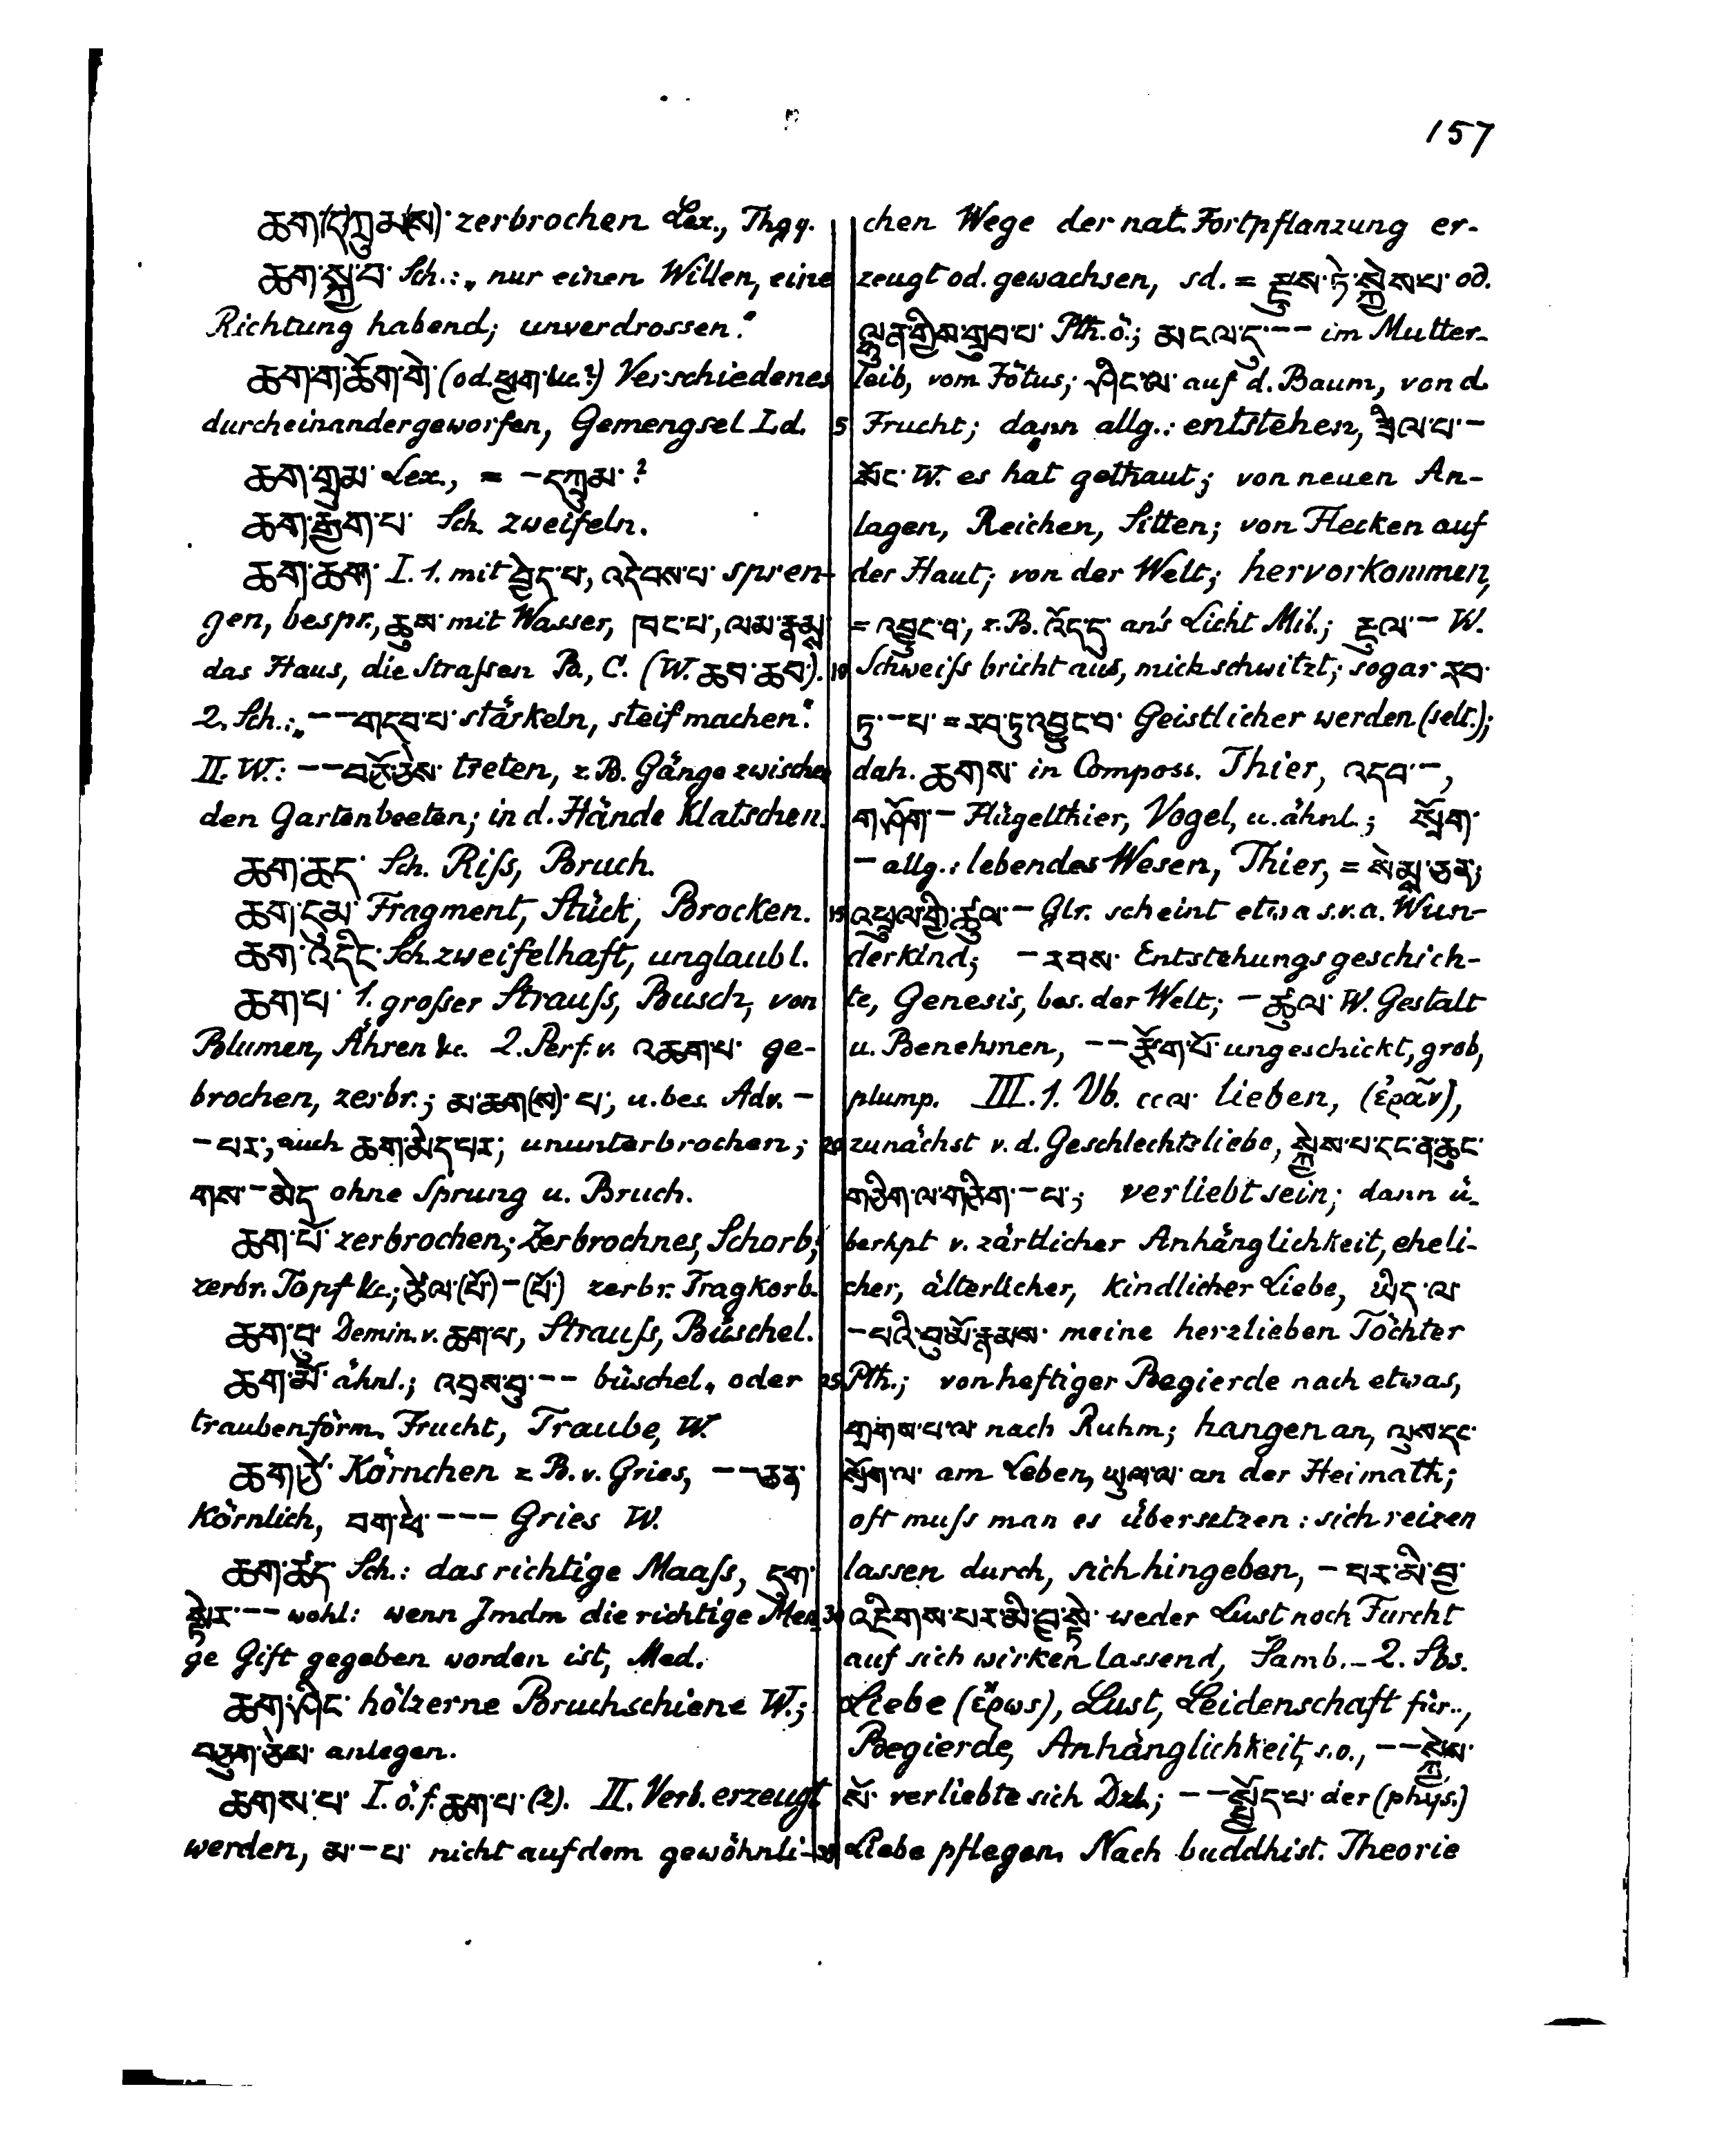 157
ཆག་(ད)ཀྲུམ(ས)་ zerbrochen Lex., Thgy.
ཆག་སྐྱ་བ་ Sch.: „nur einen Willen, eine
Richtung habend; unverdrossen."
ཆག་ག་ཆོག་གེ་ (od. ཕྱག་ &c.?) Verschiedenes
durcheinandergeworfen, Gemengsel Ld.
ཆག་གྲུམ་ Lex., = -དཀྲུམ་?
ཆག་རྒྱག་པ་ Sch. zweifeln.
ཆག་ཆག་ I. 1. mit བྱེད་པ་, འདེབས་པ་ spren-
gen, bespr., ཆུས་ mit Wasser, ཁང་པ་, ལམ་རྣམས
das Haus, die Strassen B., C. (W. ཆབ་ཆབ་).
2. Sch.: „--གདབ་པ་ stärkeln, steif machen."
II. W.: --བརྡོ་ཅེས་ treten, z.B. Gänge zwischen
den Gartenbeeten; in d. Hände klatschen.
ཆག་ཆད་ Sch. Riss, Bruch.
ཆག་དུམ་ Fragment, Stück, Brocken.
ཆག་འདིང་ Sch. zweifelhaft, unglaubl.
ཆག་པ་ 1. grosser Strauss, Busch, von
Blumen, Ähren &c. 2. Perf. v. འཆག་པ་ ge-
brochen, zerbr.; མ་ཆག(ས)་པ་, u. bes. Adv. -
-པར་, auch ཆག་མེད་པར་; ununterbrochen;
གས་-མེད ohne Sprung u. Bruch.
ཆག་པོ་ zerbrochen; Zerbrochnes, Schorb,
zerbr. Topf &c.; ཙེལ་(པོ)-(པོ་) zerbr. Tragkorb.
ཆག་བུ་ Demin. v. ཆག་པ་, Strauss, Büschel.
ཆག་མོ་ ähnl.; འབྲས་བུ་-- büschel- oder
traubenförm. Frucht, Traube, W.
ཆག་ཙེ་ Körnchen z.B. v. Gries, --ཅན་
körnlich, བག་ཕེ་--- Gries W.
ཆག་ཚད Sch.: das richtige Maass, དུག་
སྟེར་-- wohl: wenn Jmdm die richtige Men-
ge Gift gegeben worden ist, Med.
ཆག་ཤིང་ hölzerne Bruchschiene W.;
བཅུག་ཅེས་ anlegen.
ཆགས་པ་ I. ö. f. ཆག་པ་ (2). II. Verb. erzeugt
werden, མ་-པ་ nicht auf dem gewöhnli-
chen Wege der nat. Fortpflanzung er-
zeugt od. gewachsen, sd. = རྫུས་ཏེ་སྐྱེས་པ་ od.
ལྷུན་གྱིས་གྲུབ་པ་ Pth. ö.; མངལ་དུ་-- im Mutter-
leib, vom Fötus; ཤིང་ལ་ auf d. Baum, von d.
5 Frucht; dann allg.: entstehen, ཟིལ་པ་-
སོང་ W. es hat gethaut; von neuen An-
lagen, Reichen, Sitten; von Flecken auf
der Haut; von der Welt; hervorkommen,
= འབྱུང་བ་, z.B. འོད་དུ་ an's Licht Mil.; རྔུལ་- W.
10 Schweiss bricht aus, mich schwitzt; sogar རབ་
ཏུ་-པ་ = རབ་ཏུ་འབྱུང་བ་ Geistlicher werden (selt.);
dah. ཆགས་ in Composs. Thier, འདབ་-,
གཤོག་- Flügelthier, Vogel, u. ähnl.; སྲོག་
- allg.: lebendes Wesen, Thier, = སེམས་ཅན;
15 འཕྲུལ་གྱི་ཚུལ་- Glr. scheint etwa s.v.a. Wun-
derkind; -རབས་ Entstehungsgeschich-
te, Genesis, bes. der Welt; -ཚུལ་ W. Gestalt
u. Benehmen, --རྩོག་པོ་ ungeschickt, grob,
plump. III. 1. Vb. cc ལ་ lieben, (ἐρᾶν),
20 zunächst v. d. Geschlechtsliebe, སྐྱེས་པ་དང་ན་ཆུང་
གཅིག་ལ་གཅིག་-པ་; verliebt sein; dann ü-
berhpt v. zärtlicher Anhänglichkeit, eheli-
cher, älterlicher, kindlicher Liebe, ཡིད་ལ་
-པའི་བུམོ་རྣམས་ meine herzlieben Töchter
25 Pth.; von heftiger Begierde nach etwas,
གྲགས་པ་ལ་ nach Ruhm; hangen an, ལུས་དང་
སྲོག་ལ་ am Leben, ཡུལ་ལ་ an der Heimath;
oft muss man es übersetzen: sich reizen
lassen durch, sich hingeben, -པར་མི་བྱ་
30 འཇིགས་པར་མི་བྱ་སྟེ་ weder Lust noch Furcht
auf sich wirken lassend, Samb. - 2. Sbs.
Liebe (ἔρως), Lust, Leidenschaft für..,
Begierde, Anhänglichkeit, s.o., --སྐྱེས་
སོ་ verliebte sich Dzl.; --སྤྱོད་པ་ der (phys.)
35 Liebe pflegen. Nach buddhist. Theorie